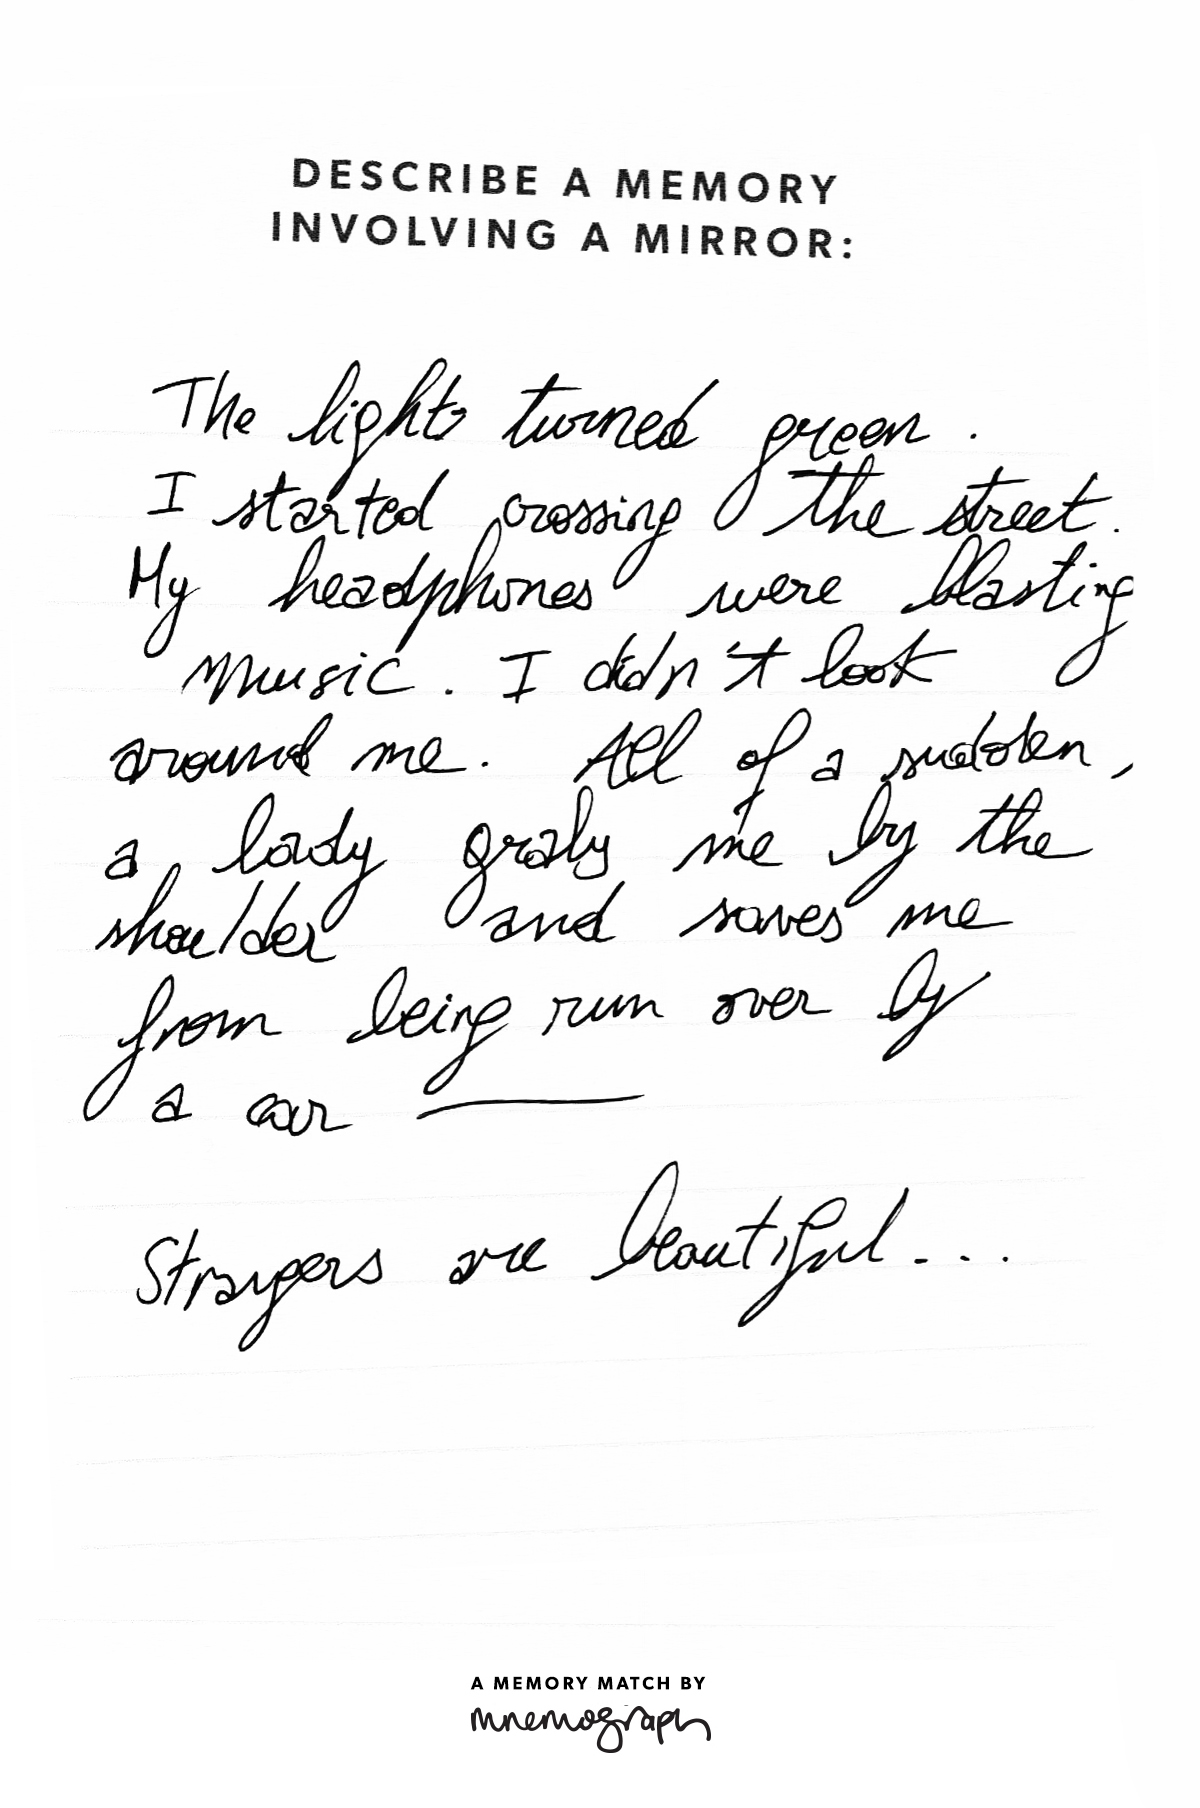 DESCRIBE A MEMORY
INVOLVING A MIRROR:
The lights turned green.
I started crossing the street.
My headphones were blasting
music. I didn't look
around me. All of a sudden,
a lady grabs me by the
shoulder and saves me
from being run over by
a car ——
Strangers are beautiful...
A MEMORY MATCH BY
mnemograph